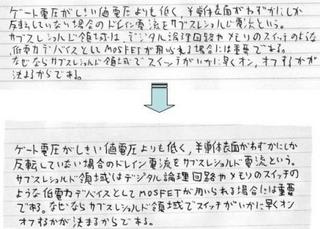 ゲート電圧がしきい値電圧よりも低く、半導体表面がわずかにしか
反転していない場合のドレイン電流をサブスレショルド電流という。
サブスレショルド領域は、デジタル論理回路やメモリのスイッチのような
低電力デバイスとしてMOSFETが用いられる場合には重要である。
なぜならサブスレショルド領域でスイッチがいかに早くオン、オフするかが
決まるからである。
ゲート電圧がしきい値電圧よりも低く、半導体表面がわずかにしか
反転していない場合のドレイン電流をサブスレショルド電流という。
サブスレショルド領域はデジタル論理回路やメモリのスイッチの
ような低電力デバイスとしてMOSFETが用いられる場合には重要
である。なぜならサブスレショルド領域でスイッチがいかに早くオン
オフするかが決まるからである。